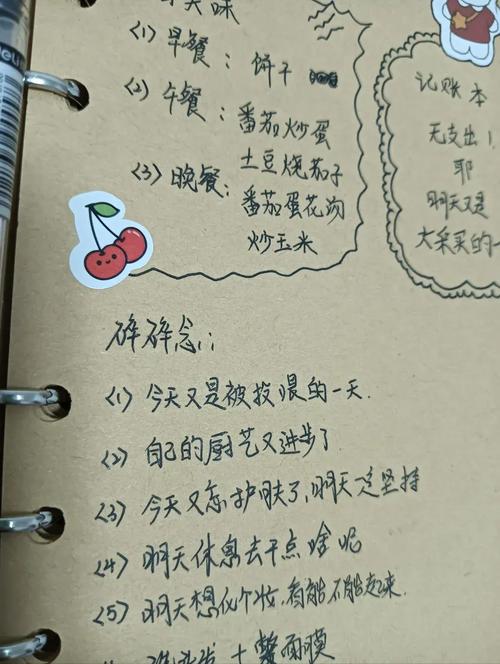 (1) 早餐：饼干
(2) 午餐：番茄炒蛋
土豆烧茄子
(3) 晚餐：番茄蛋花汤
炒玉米
记账本
无支出！
耶
明天又是
大采买的一
碎碎念：
(1) 今天又是被投喂的一天.
(2) 自己的厨艺又进步了
(3) 今天又忘护肤了，明天一定坚持
(4) 明天休息去干点啥呢
(5) 明天想化个妆，看能不能起来.
+ 面膜